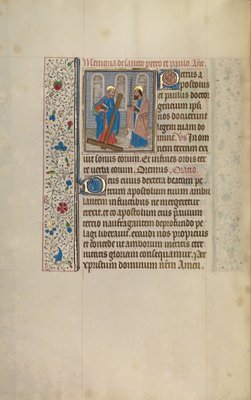 Memoria de sancto petro et paulo. Ant.
Petrus a
postolus
et paulus doctor
gentium ipsi
nos docuerunt
legem tuam do
mine. Vs In om
nem terram exi
uit sonus eorum. Et in fines orbis ter
re verba eorum. Oremus. Oratio.
Deus cuius dextera beatum pe
trum apostolum suum ambu
lantem in fluctibus ne mergeretur
erexit. et coapostolum eius paulum
tercio naufragantem de profundo pe
lagi liberauit. exaudi nos propicius
et concede ut amborum meritis eter
nitatis gloriam consequamur. Per
xpristum dominum nrm Amen.